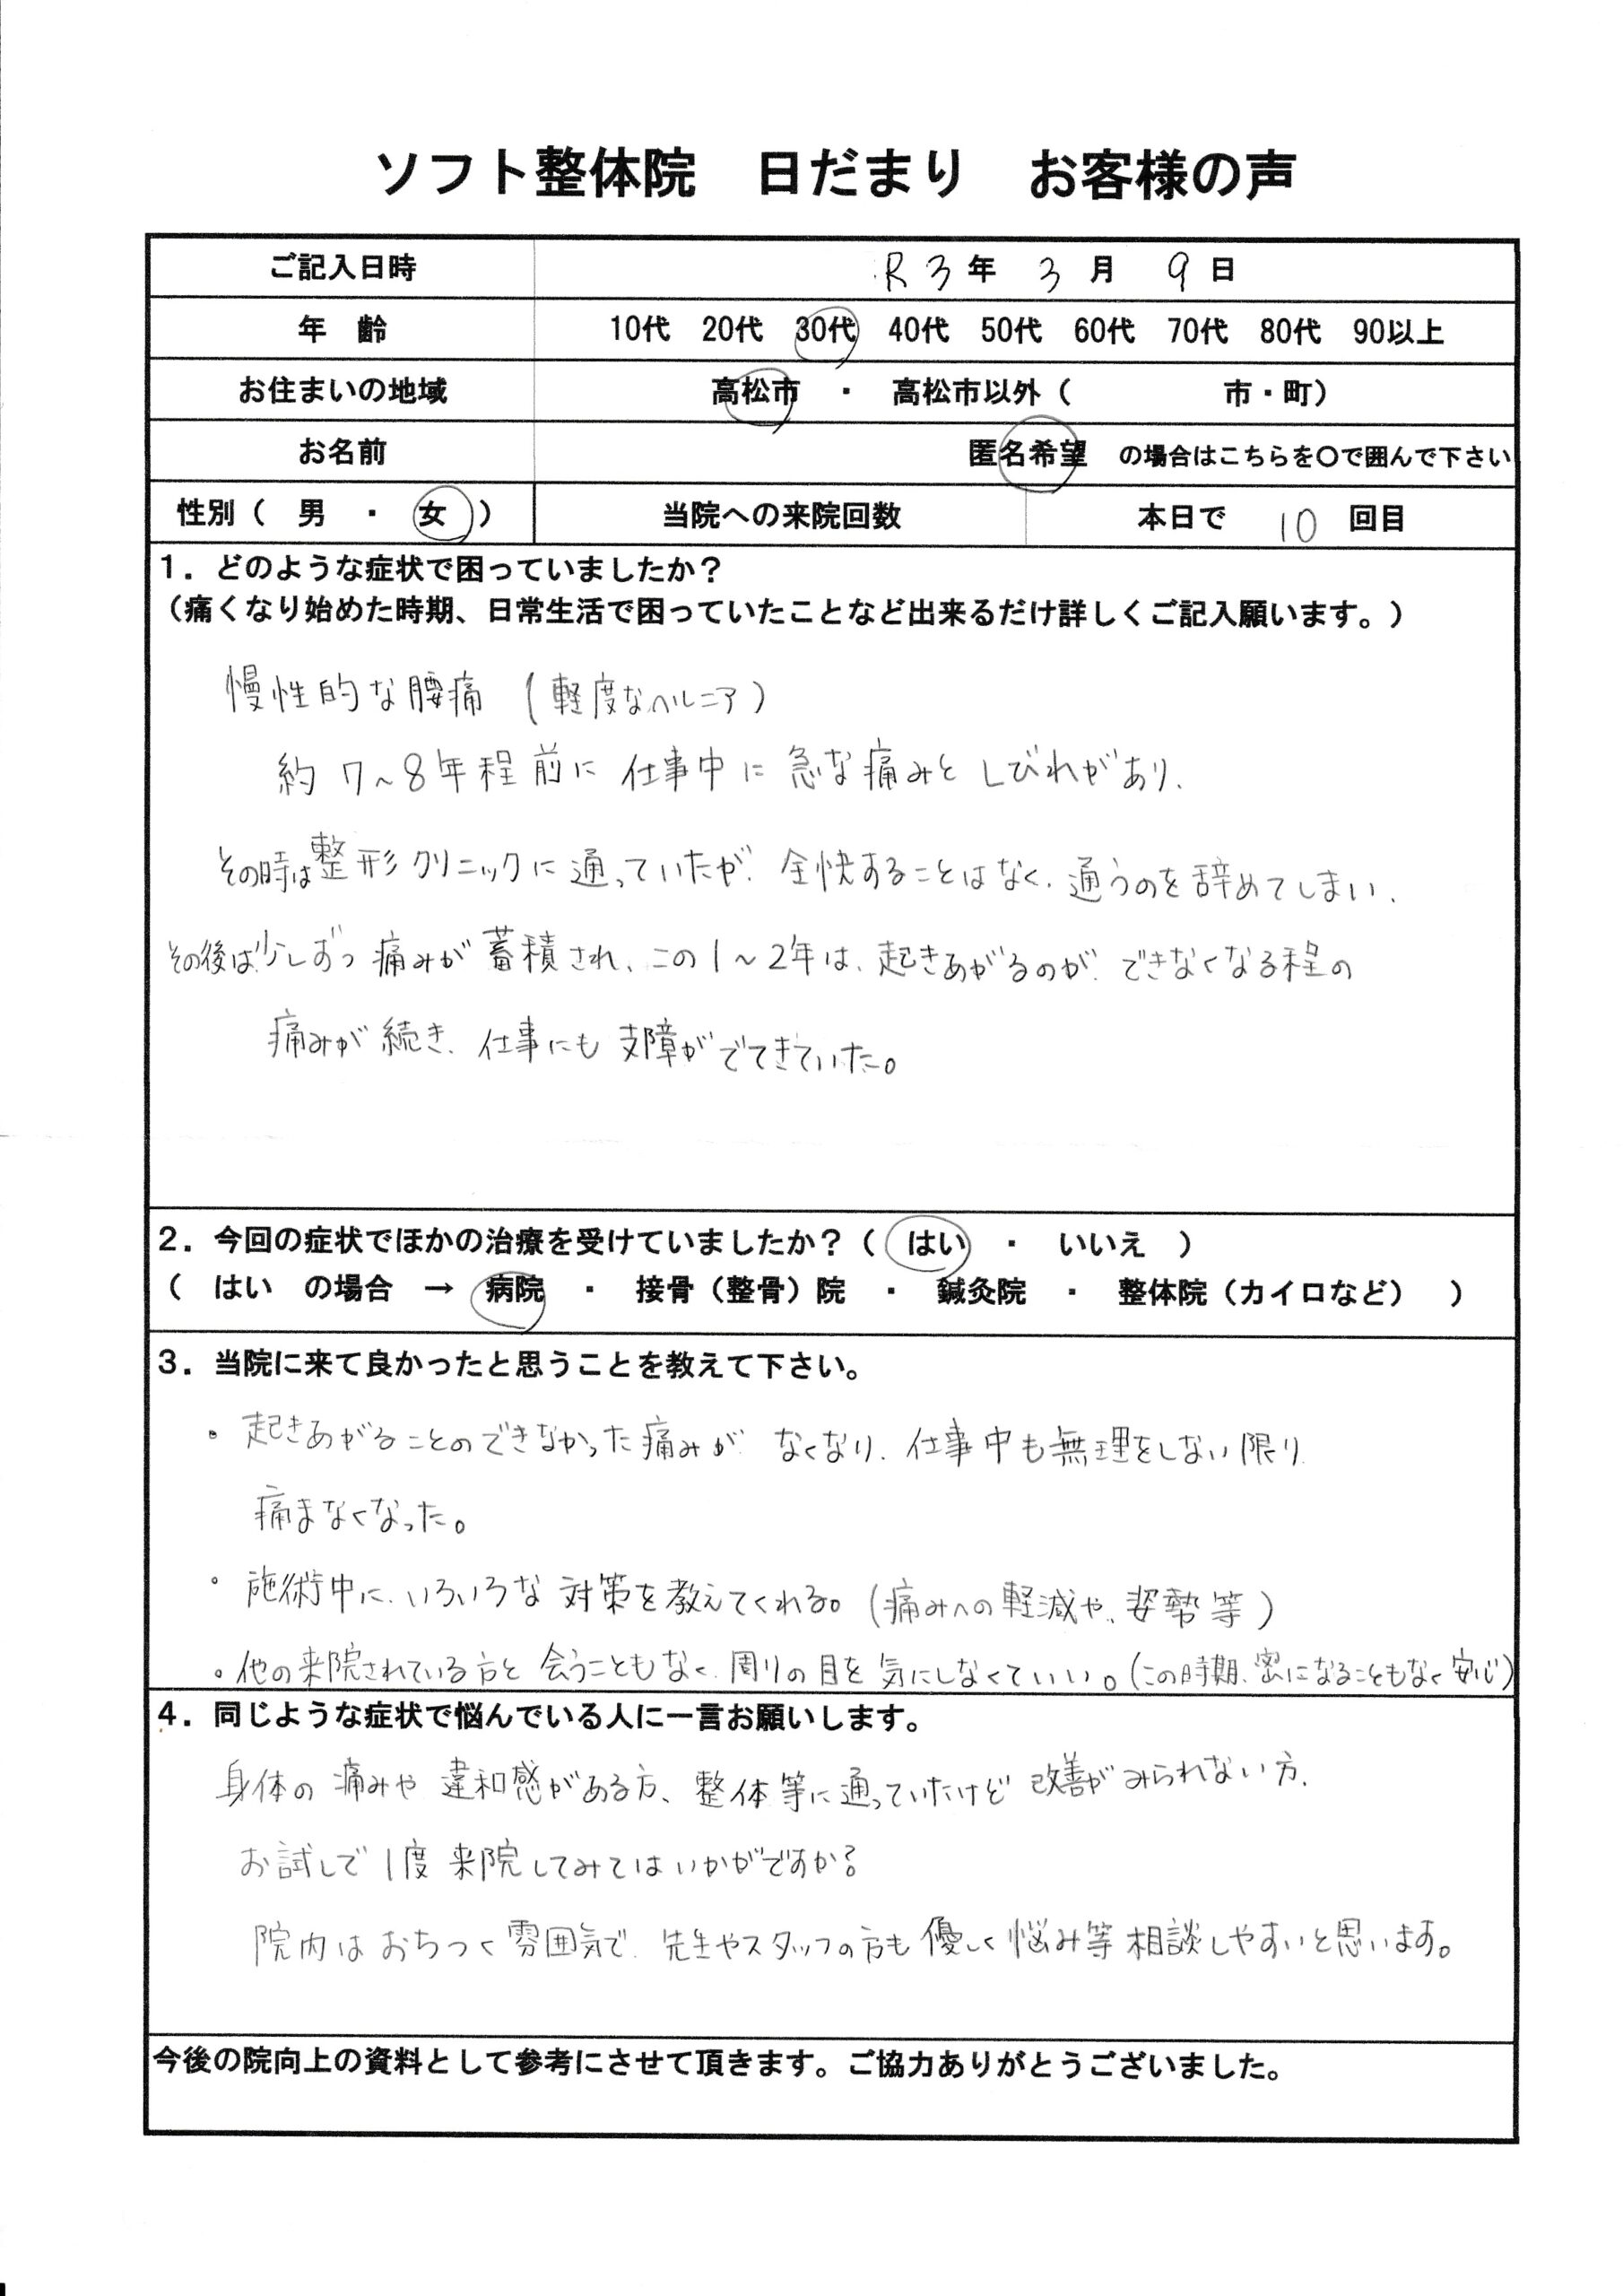 ソフト整体院　日だまり　お客様の声
ご記入日時　R3年 3月 9日
年　齢　10代　20代　30代　40代　50代　60代　70代　80代　90以上
お住まいの地域　高松市　・　高松市以外（　　　　　市・町）
お名前　匿名希望　の場合はこちらを〇で囲んで下さい
性別（　男　・　女　）　当院への来院回数　本日で　10　回目
1．どのような症状で困っていましたか？
（痛くなり始めた時期、日常生活で困っていたことなど出来るだけ詳しくご記入願います。）
慢性的な腰痛（軽度なヘルニア）
約7～8年程前に仕事中に急な痛みとしびれがあり、
その時は整形クリニックに通っていたが、全快することはなく、通うのを辞めてしまい、
その後は少しずつ痛みが蓄積され、この1～2年は、起きあがるのができなくなる程の
痛みが続き、仕事にも支障がでてきていた。
2．今回の症状でほかの治療を受けていましたか？（　はい　・　いいえ　）
（　はい　の場合　→　病院　・　接骨（整骨）院　・　鍼灸院　・　整体院（カイロなど）　）
3．当院に来て良かったと思うことを教えて下さい。
・起きあがることのできなかった痛みがなくなり、仕事中も無理をしない限り
痛まなくなった。
・施術中に、いろいろな対策を教えてくれる。（痛みへの軽減や、姿勢等）
・他の来院されている方と会うこともなく、周りの目を気にしなくていい。（この時期、密になることもなく安心）
4．同じような症状で悩んでいる人に一言お願いします。
身体の痛みや違和感がある方、整体等に通っていたけど改善がみられない方、
お試しで1度来院してみてはいかがですか？
院内はおちつく雰囲気で、先生やスタッフの方も優しく悩み等相談しやすいと思います。
今後の院向上の資料として参考にさせて頂きます。ご協力ありがとうございました。